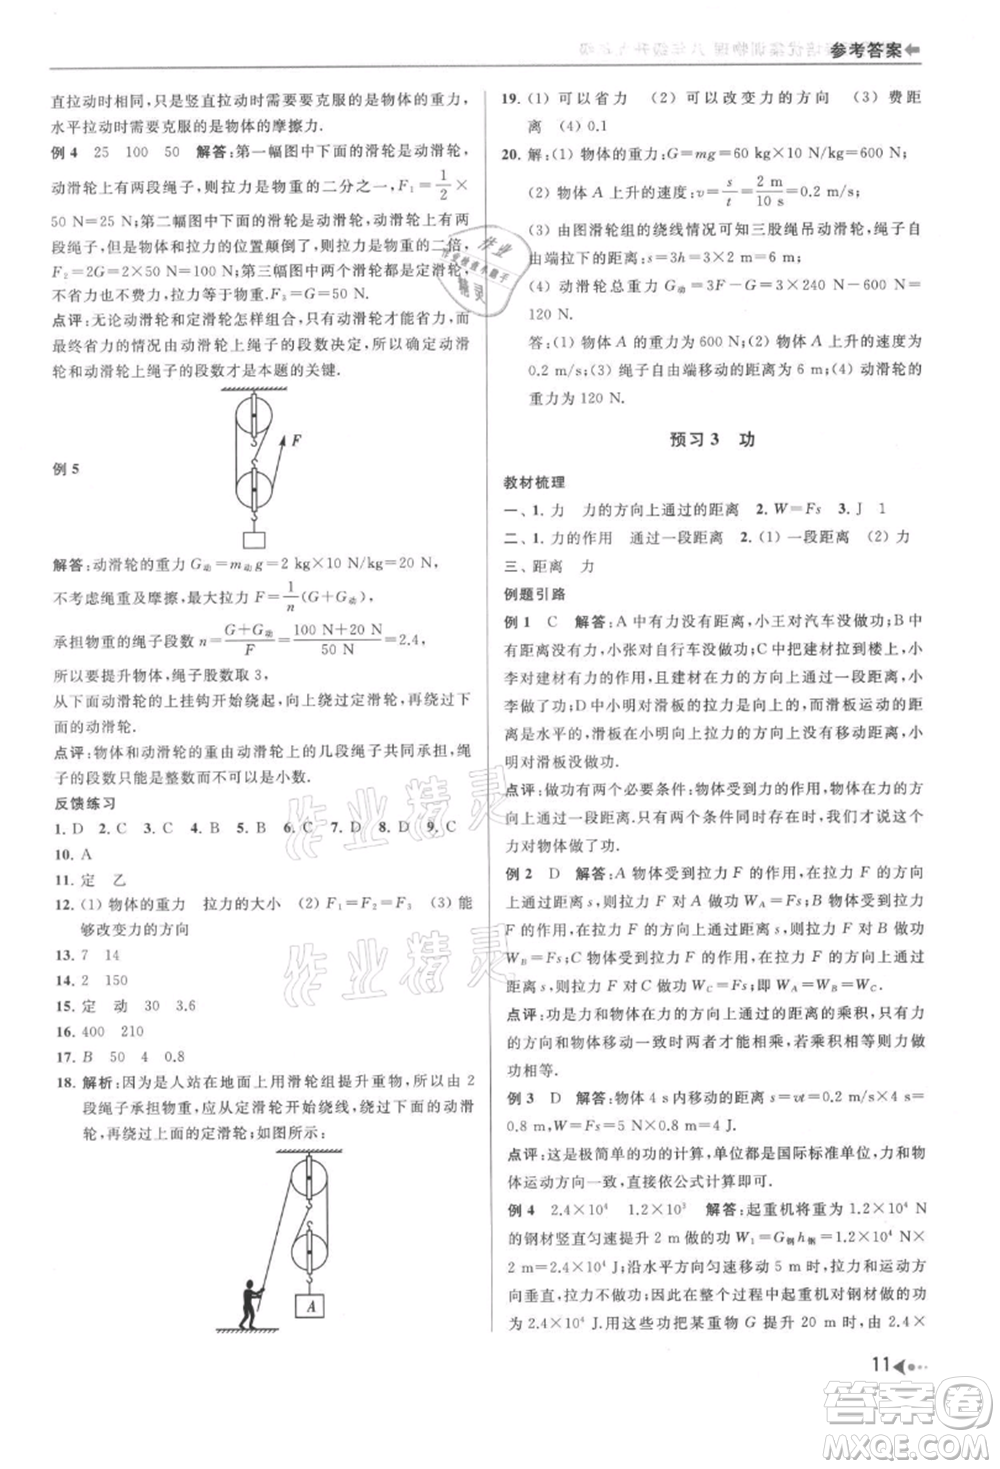 参考答案
直拉动时相同,只是竖直拉动时需要要克服的是物体的重力,
水平拉动时需要克服的是物体的摩擦力.
例 4 25 100 50 解答:第一幅图中下面的滑轮是动滑轮,
动滑轮上有两段绳子,所以拉力是物重的二分之一,F₁=1/2×
50 N=25 N;第二幅图中下面的滑轮是动滑轮,动滑轮上有两
段绳子,但是,物体和拉力的位置颠倒了,拉力是物重的二倍,
F₂=2G=2×50 N=100 N;第三幅图中两个滑轮都是定滑轮,
不省力也不费力,拉力等于物重,F₃=G=50 N.
点评:无论动滑轮和定滑轮怎样组合,只有动滑轮才能省力,而
最终省力的情况由动滑轮上绳子的段数决定,所以确定动滑
轮和动滑轮上绳子的段数才是本题的关键.
F
例 5
解答:动滑轮的重力 G动=m动g=2 kg×10 N/kg=20 N,
不考虑绳重及摩擦,最大拉力 F=1/n(G+G动),
承担物重的绳子段数 n=(G+G动)/F=(100 N+20 N)/50 N=2.4,
所以要提升物体,绳子股数取 3,
从下面的动滑轮的上挂钩开始绕起,向上绕过定滑轮,再绕过下
面的动滑轮.
点评:物体和动滑轮的重由动滑轮上的几段绳子共同承担,绳
子的段数只能是整数而不可以是小数.
反馈练习
1. D 2. C 3. C 4. B 5. B 6. C 7. D 8. D 9. C
10. A
11. 定 乙
12. (1) 物体的重力 拉力的大小 (2) F₁=F₂=F₃ (3) 能
够改变力的方向
13. 7 14
14. 2 150
15. 定 动 30 3.6
16. 400 210
17. B 50 4 0.8
18. 解析:因为是人站在地面上用滑轮组提升重物,所以由 2
段绳子承担物重,应从动滑轮开始绕线,绕过上面的定滑
轮,再绕过上面的定滑轮;如图所示:
A
19. (1) 可以省力 (2) 可以改变力的方向 (3) 费距
离 (4) 0.1
20. 解:(1) 物体的重力:G=mg=60 kg×10 N/kg=600 N;
(2) 物体 A 上升的速度:v=s/t=2 m/10 s=0.2 m/s;
(3) 由图滑轮组的绕线情况可知三股绳吊动滑轮,绳子自
由端拉下的距离:s=3h=3×2 m=6 m;
(4) 动滑轮总重力 G动=3F-G=3×240 N-600 N=
120 N.
答:(1) 物体 A 的重力为 600 N;(2) 物体 A 上升的速度为
0.2 m/s;(3) 绳子自由端移动的距离为 6 m;(4) 动滑轮的
重力为 120 N.
预习 3 功
教材梳理
一、1. 力 力的方向上通过的距离 2. W=Fs 3. J 1
二、1. 力的作用 通过一段距离 2. (1) 一段距离 (2) 力
三、距离 力
例题引路
例 1 C 解答:A 中有力没有距离,小王对汽车没做功;B 中有
力没有距离,小张对自行车没做功;C 中把建材拉到楼上,小
李对建材有力的作用,且建材在力的方向上移动了距离,小
李做了功;D 中小明对滑板的拉力是向上的,而滑板运动的距
离是水平的,滑板在小明向上拉力的方向上没有距离,小明
对滑板没做功.
点评:做功有两个必要条件:作用在物体上的力,物体在力的
方向上移动距离.只有这两个条件同时存在时,我们才可以说
力对物体做了功.
例 2 D 解答:A 物体受到拉力 F 的作用,在力的方向上通
过的距离是 s,所以拉力 F 做功 WA=Fs;B 物体受到拉力 F
的作用,在力的方向上通过的距离也是 s,所以拉力 F 做功
WB=Fs;C 物体受到拉力 F 的作用,在力的方向上通过的
距离还是 s,所以拉力 F 做功 WC=Fs;即 WA=WB=WC.
点评:功是力与物体在力的方向上通过的距离的乘积,只有力
的方向和物体移动方向一致时两者才可直接相乘,否则就
不能直接相乘.若两者乘积相等,则力对物体所做的功就
相等.
例 3 D 解答:物体 4 s内移动的路程:s=vt=0.2 m/s×4 s=
0.8 m,所做的功:W=Fs=5 N×0.8 m=4 J.
点评:这是极简单的功的计算,单位都是国际标准单位,力与
物体运动方向一致,直接依公式计算即可.
例 4 2.4×10⁴ 1.2×10³ 解答:起重机将重为 1.2×10⁴ N
的钢材竖直匀速提升 2 m 做的功 W₁=G钢h钢=1.2×10⁴ N×
2 m=2.4×10⁴ J;沿水平方向匀速移动 5 m,拉力和运动方
向垂直,拉力不做功,所以,在整个过程中起重机对钢材做的功
为 2.4×10⁴ J.用这些功把某重物 G 提升 20 m 时,由 2.4×
11
作业精灵
作业精灵
答案卷
MXQE.COM